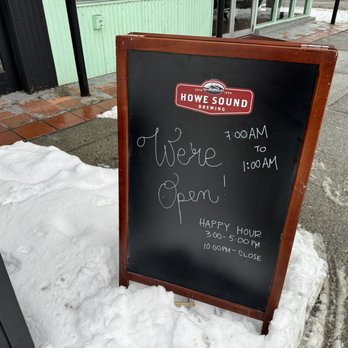 HOWE SOUND
BREWING
7:00AM
TO
1:00AM
We're
Open!
HAPPY HOUR
3:00-5:00PM
10:00PM-CLOSE